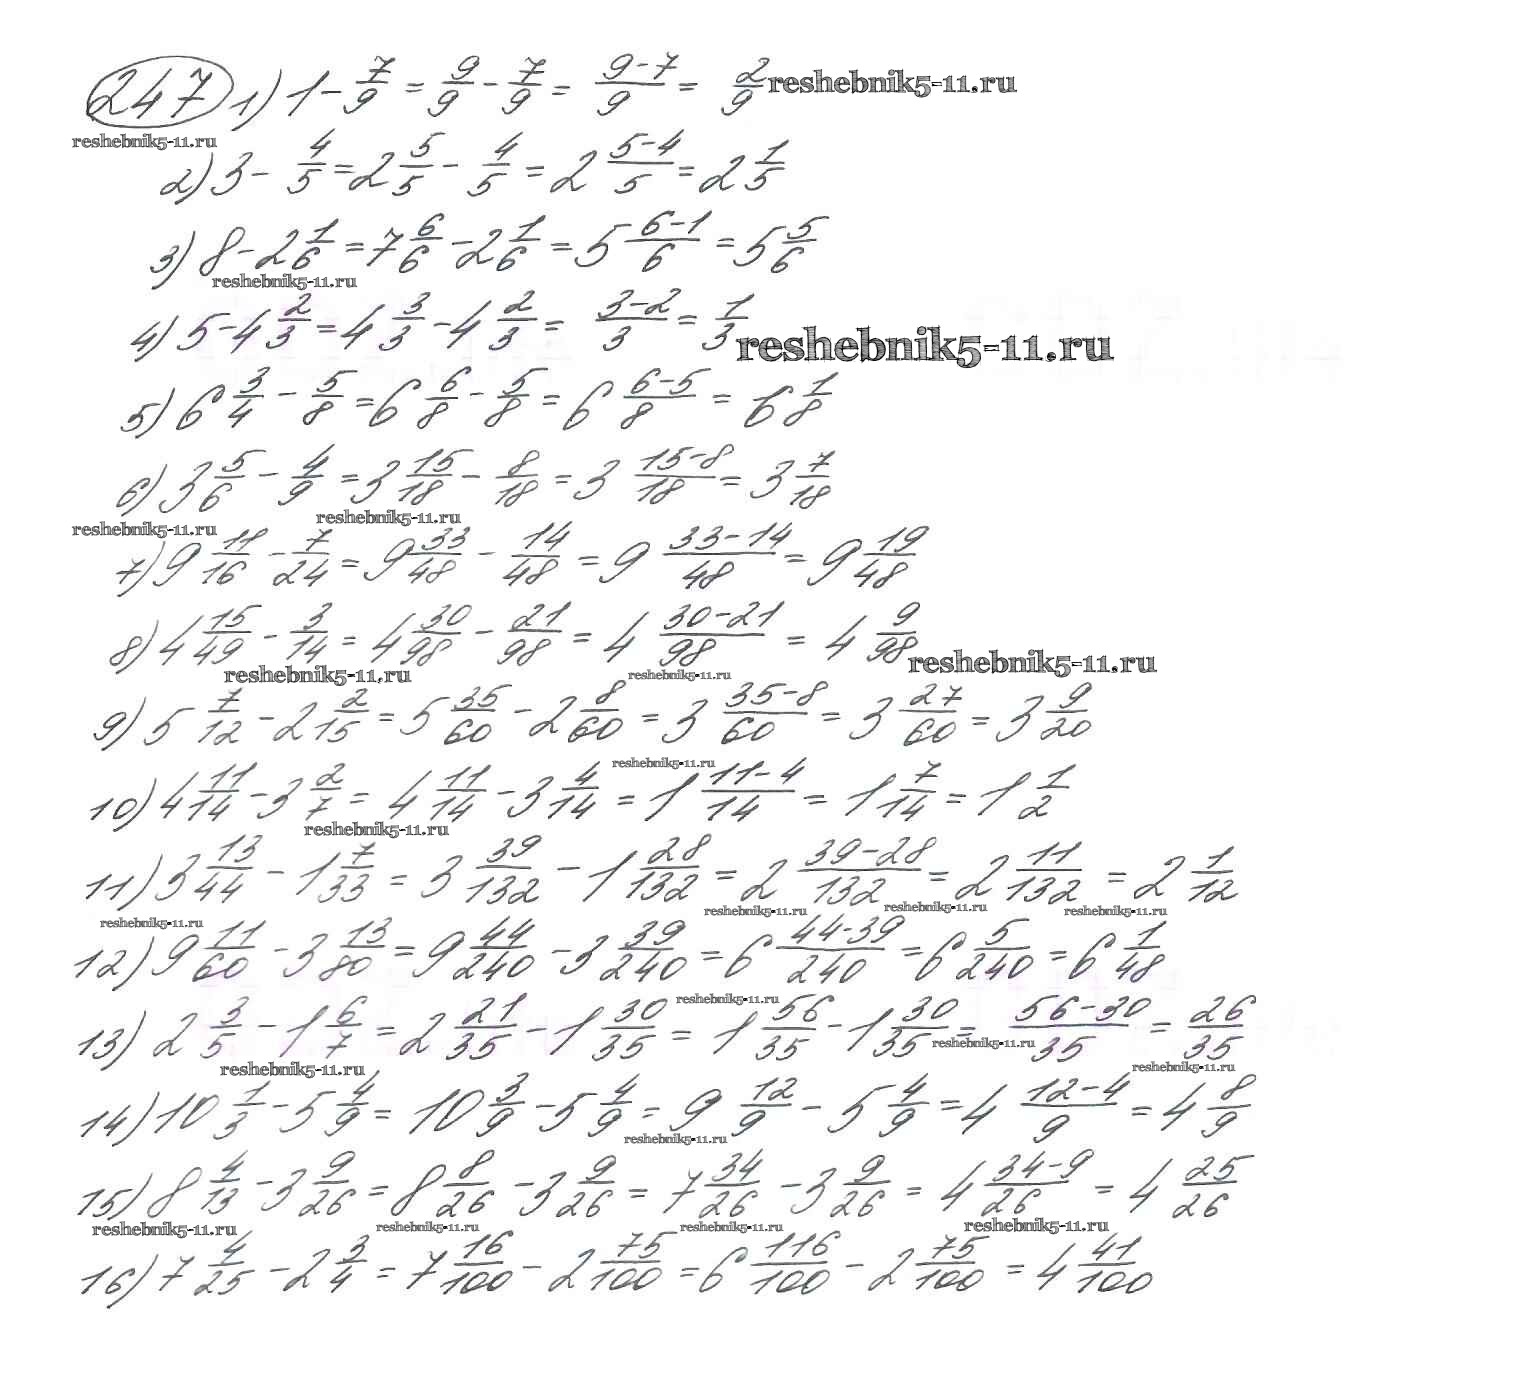 247 1) 1 - 7/9 = 9/9 - 7/9 = (9-7)/9 = 2/9 reshebnik5-11.ru
reshebnik5-11.ru
2) 3 - 4/5 = 2 5/5 - 4/5 = 2 (5-4)/5 = 2 1/5
3) 8 - 2 1/6 = 7 6/6 - 2 1/6 = 5 (6-1)/6 = 5 5/6
reshebnik5-11.ru
4) 5 - 4 2/3 = 4 3/3 - 4 2/3 = (3-2)/3 = 1/3 reshebnik5-11.ru
5) 6 3/4 - 5/8 = 6 6/8 - 5/8 = 6 (6-5)/8 = 6 1/8
6) 3 5/6 - 4/9 = 3 15/18 - 8/18 = 3 (15-8)/18 = 3 7/18
reshebnik5-11.ru reshebnik5-11.ru
7) 9 11/16 - 7/24 = 9 33/48 - 14/48 = 9 (33-14)/48 = 9 19/48
8) 4 15/49 - 3/14 = 4 30/98 - 21/98 = 4 (30-21)/98 = 4 9/98 reshebnik5-11.ru
reshebnik5-11.ru reshebnik5-11.ru
9) 5 7/12 - 2 2/15 = 5 35/60 - 2 8/60 = 3 (35-8)/60 = 3 27/60 = 3 9/20
reshebnik5-11.ru
10) 4 11/14 - 3 2/7 = 4 11/14 - 3 4/14 = 1 (11-4)/14 = 1 7/14 = 1 1/2
reshebnik5-11.ru
11) 3 13/44 - 1 7/33 = 3 39/132 - 1 28/132 = 2 (39-28)/132 = 2 11/132 = 2 1/12
reshebnik5-11.ru reshebnik5-11.ru reshebnik5-11.ru reshebnik5-11.ru
12) 9 11/60 - 3 13/80 = 9 44/240 - 3 39/240 = 6 (44-39)/240 = 6 5/240 = 6 1/48
reshebnik5-11.ru
13) 2 3/5 - 1 6/7 = 2 21/35 - 1 30/35 = 1 56/35 - 1 30/35 = (56-30)/35 = 26/35
reshebnik5-11.ru reshebnik5-11.ru reshebnik5-11.ru
14) 10 1/3 - 5 4/9 = 10 3/9 - 5 4/9 = 9 12/9 - 5 4/9 = 4 (12-4)/9 = 4 8/9
reshebnik5-11.ru
15) 8 4/13 - 3 9/26 = 8 8/26 - 3 9/26 = 7 34/26 - 3 9/26 = 4 (34-9)/26 = 4 25/26
reshebnik5-11.ru reshebnik5-11.ru reshebnik5-11.ru reshebnik5-11.ru
16) 7 4/25 - 2 3/4 = 7 16/100 - 2 75/100 = 6 116/100 - 2 75/100 = 4 41/100